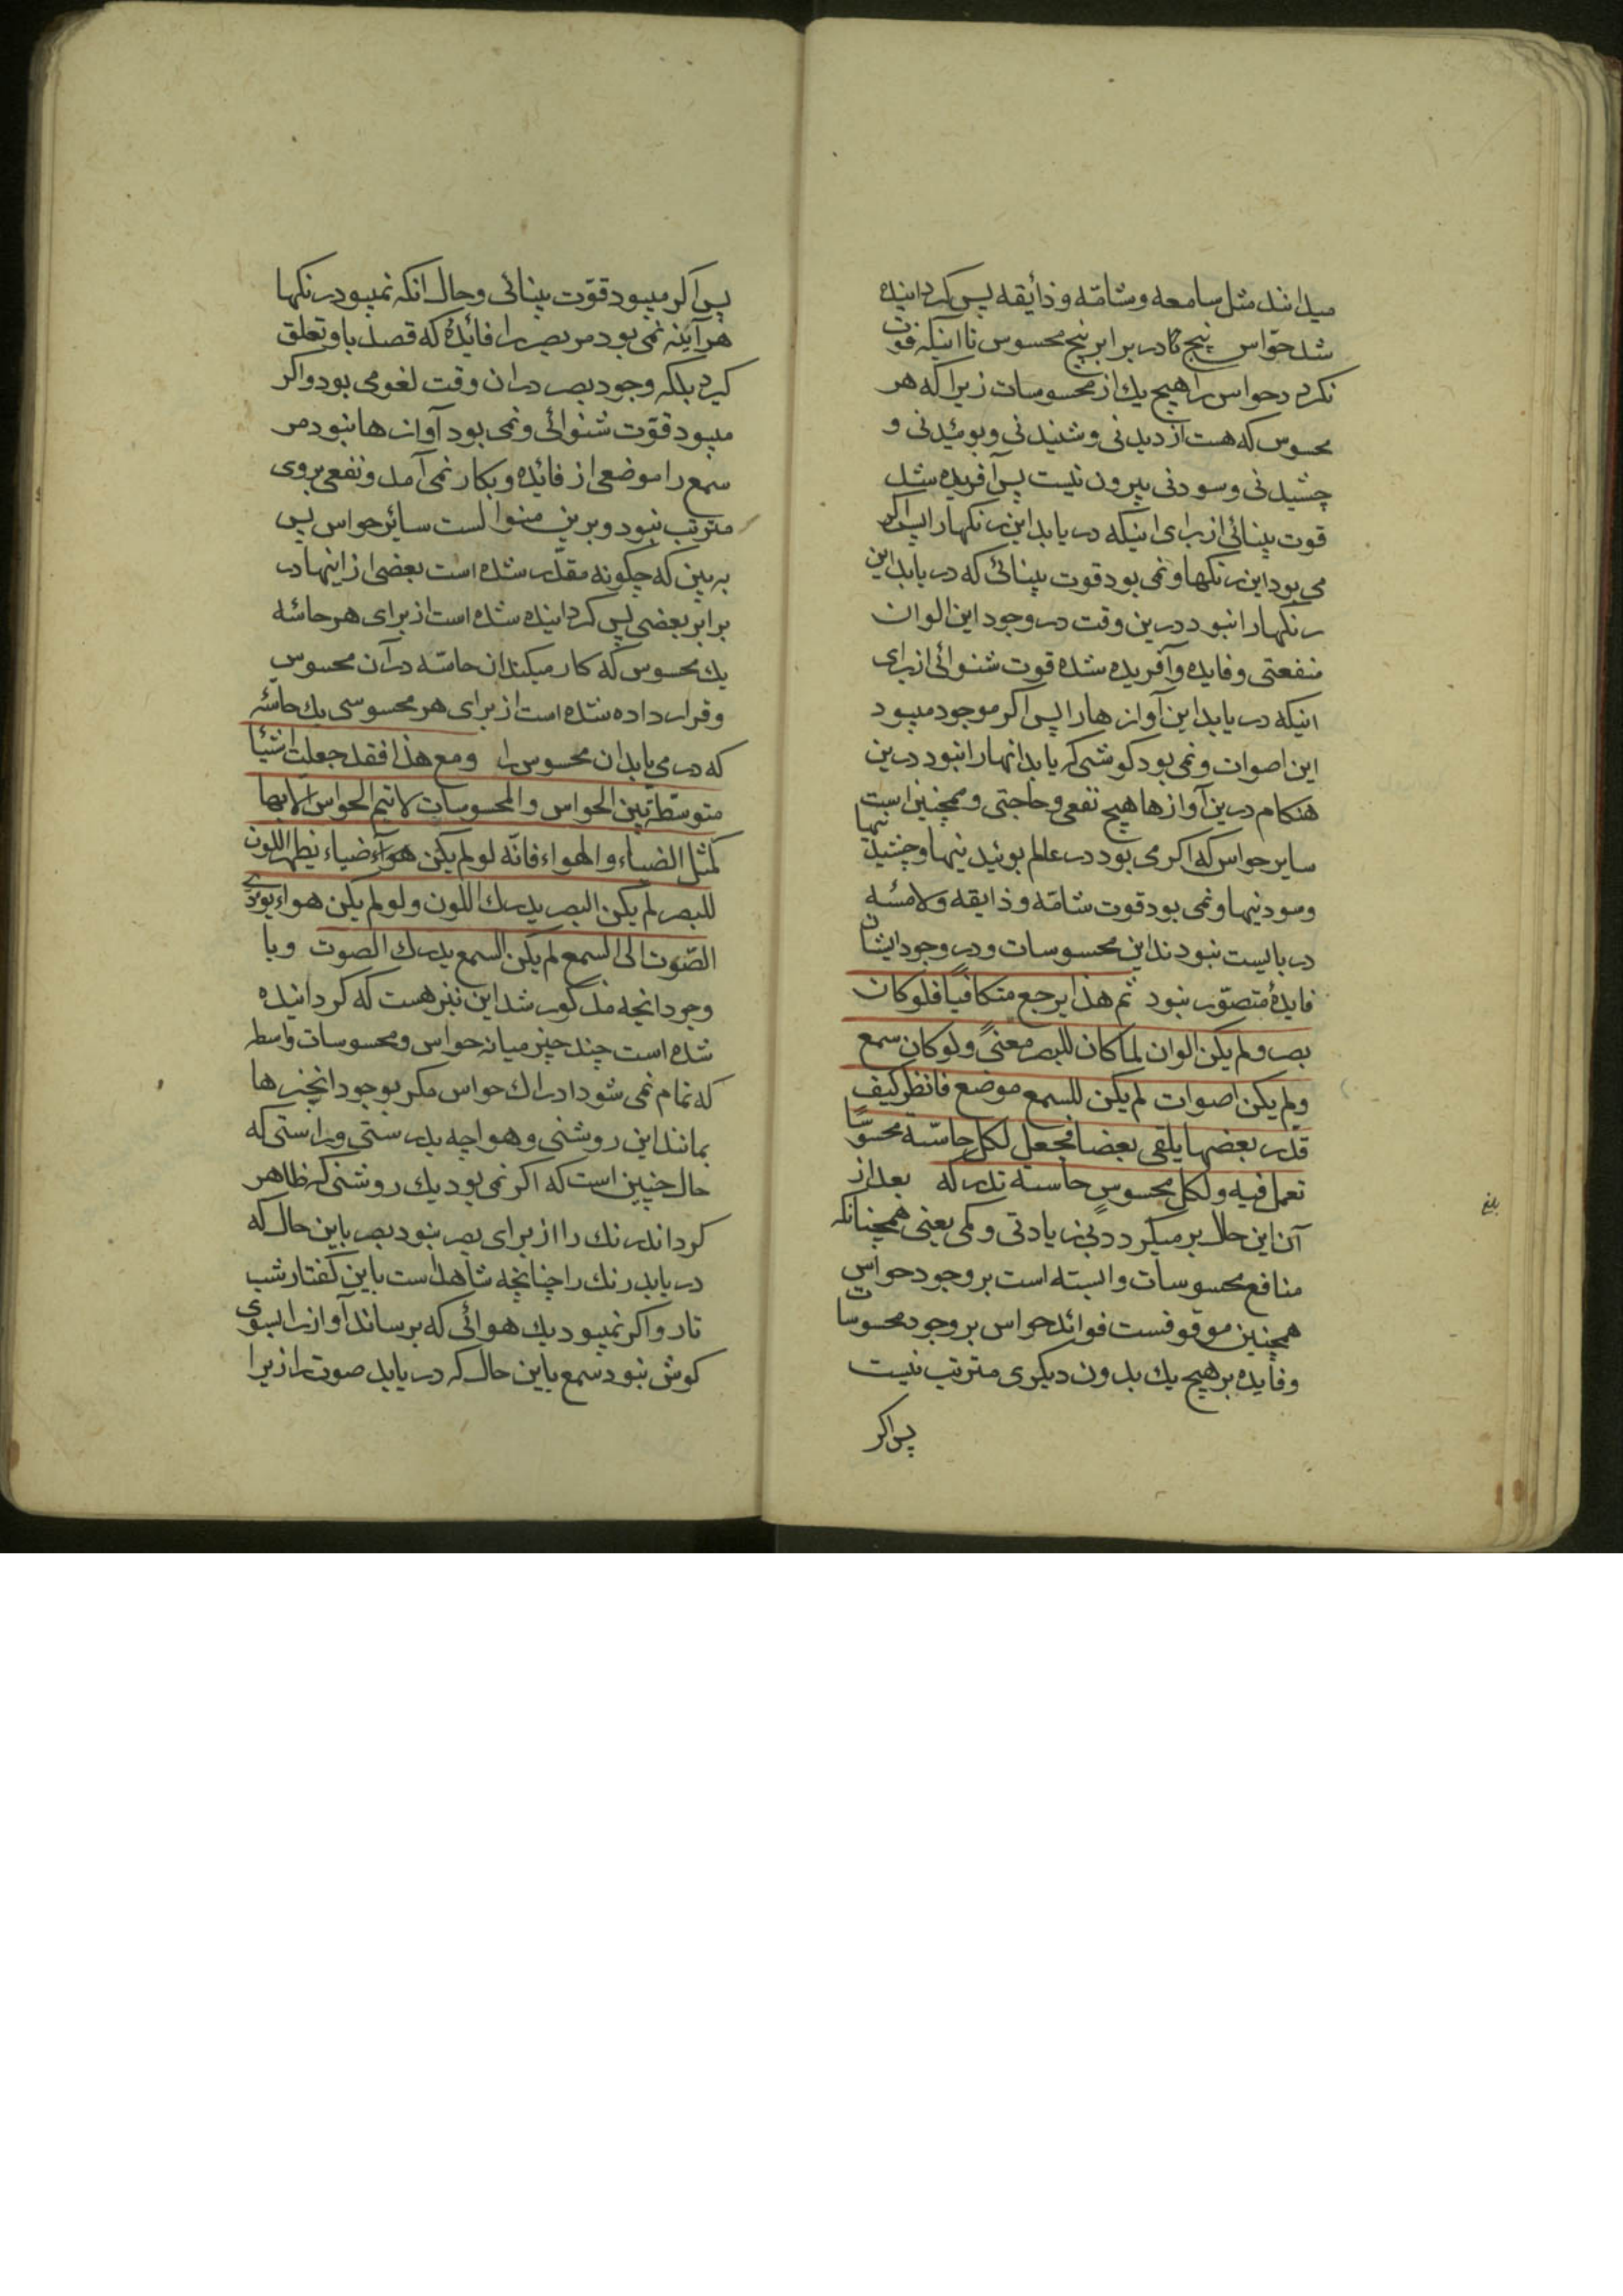 میدانند مثل سامعه وشامّه وذائقه پس کردانیده
شد حوّاس پنج کا در برابر پنج محسوس تا اینکه فوت
نکرد حواس را هیچ یك از محسوسات زیرا که هر
محسوس که هست از دیدنی وشنیدنی وبوئیدنی و
چشیدنی وسودنی بیرون نیست پس آفریده شد
قوت بینائی از برای اینکه دریابد این رنکها را پس اکر
می بود این رنکها ونمی بود قوت بینائی که دریابد این
رنکها را نبود درین وقت در وجود این الوان
منفعتی وفایده وآفریده شده قوت شنوائی از برای
اینکه دریابد این آواز ها را پس اکر موجود میبود
این اصوات ونمی بود کوشی که یابد انها را نبود درین
هنکام درین آواز ها هیچ نفعی وحاجتی وهمچنین است
سایر حواس که اکر می بود در عالم بوئیدنیها وچشیدنیها
وسودنیها ونمی بود قوت شامّه وذایقه ولامسه
دربایست نبودند این محسوسات ودر وجود ایشان
فایدهٔ متصوّر نبود ثم هذا یرجع متکافیا فلو کان
بصر ولم یکن الوان لما کان للبصر معنیً ولو کان سمع
ولم یکن اصوات لم یکن للسمع موضع فانظر کیف
قدر بعضها یلقی بعضا فجعل لکل حاسّة محسوسًا
تعمل فیه ولکل محسوسٍ حاسة تدرکه بعد از
آن این حال بر میکردد بی زیادتی وکمی یعنی همچنانکه
منافع محسوسات وابسته است بر وجود حواس
همچنین موقوفست فوائد حواس بر وجود محسوسات
وفایده بر هیچ یك بدون دیکری مترتب نیست
پس اکر
بلغ
پس اکر میبود قوّت بینائی وحال انکه نمیبود رنکها
هر آینه نمی بود مر بصر را فائدهٔ که قصد باو تعلق
کیرد بلکه وجود بصر در ان وقت لغو می بود واکر
میبود قوّت شنوائی ونمی بود آواز ها نبود مر
سمع را موضعی از فائده وبکار نمی آمد ونفعی بروی
مترتب نبود وبرین منوالست سائر حواس پس
به بین که چکونه مقدّر شده است بعضی از اینها در
برابر بعضی پس کردانیده شده است از برای هر حاسّه
یك محسوس که کار میکند ان حاسّه در آن محسوس
وقرار داده شده است از برای هر محسوسی یك حاسّه
که در می یابد ان محسوس را ومع هذا فقد جعلت اشیا
متوسّطة بین الحواس والمحسوسات لا تتم الحواس الا بها
کمثل الضیاء والهواء فانّه لو لم یکن ضیاء یظهر اللون
للبصر لم یکن البصر یدرك اللون ولو لم یکن هواء یؤدّی
الصّوت الی السمع لم یکن السمع یدرك الصوت وبا
وجود انچه مذکور شد این نیز هست که کردانیده
شده است چند چیز میانه حواس ومحسوسات واسطه
که تمام نمی شود ادراك حواس مکر بوجود انچیز ها
بمانند این روشنی وهوا چه بدرستی وراستی که
حال چنین است که اکر نمی بود یك روشنی که ظاهر
کرداند رنك را از برای بصر نبود بصر باین حال که
دریابد رنك را چنانچه شاهد است باین کفتار شب
تار واکر نمیبود یك هوائی که برساند آواز را بسوی
کوش نبود سمع باین حال که دریابد صوت را زیرا